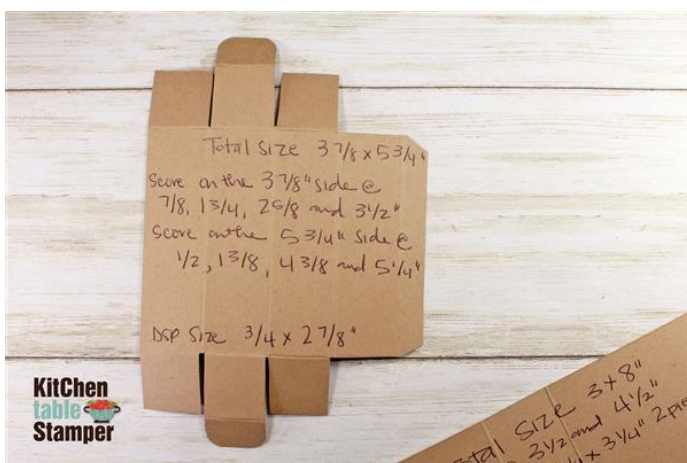 Total Size 3 7/8 x 5 3/4"
Score on the 3 7/8" side @
7/8, 1 3/4, 2 5/8 and 3 1/2"
Score on the 5 3/4" side @
1/2, 1 3/8, 4 3/8 and 5 1/4"
DSP Size 3/4 x 2 7/8"
KitChen
table
Stamper
Total Size 3 x 8"
3 1/2 and 4 1/2"
x 3 1/4" 2 pie